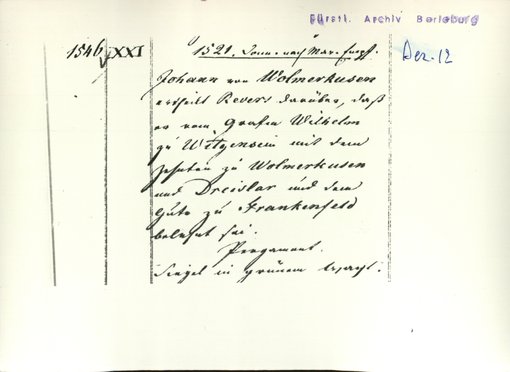 Fürstl. Archiv Berleburg
1546 XXI
1521. Sonn. nach Mar. Empf.
Dez. 12
Johann von Wolmerkusen
ertheilt Revers darüber, daß
er vom Grafen Wilhelm
zu Witgenstein mit dem
Zehnten zu Wolmerkusen
und Dreislar und dem
Gute zu Frankenfeld
belehnt sei.
Pergament.
Siegel in grünem Wachs.